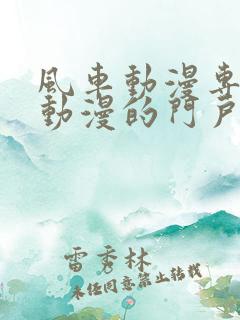 風車動漫專
動漫的門戶
雷秀林
未任同意禁止转载